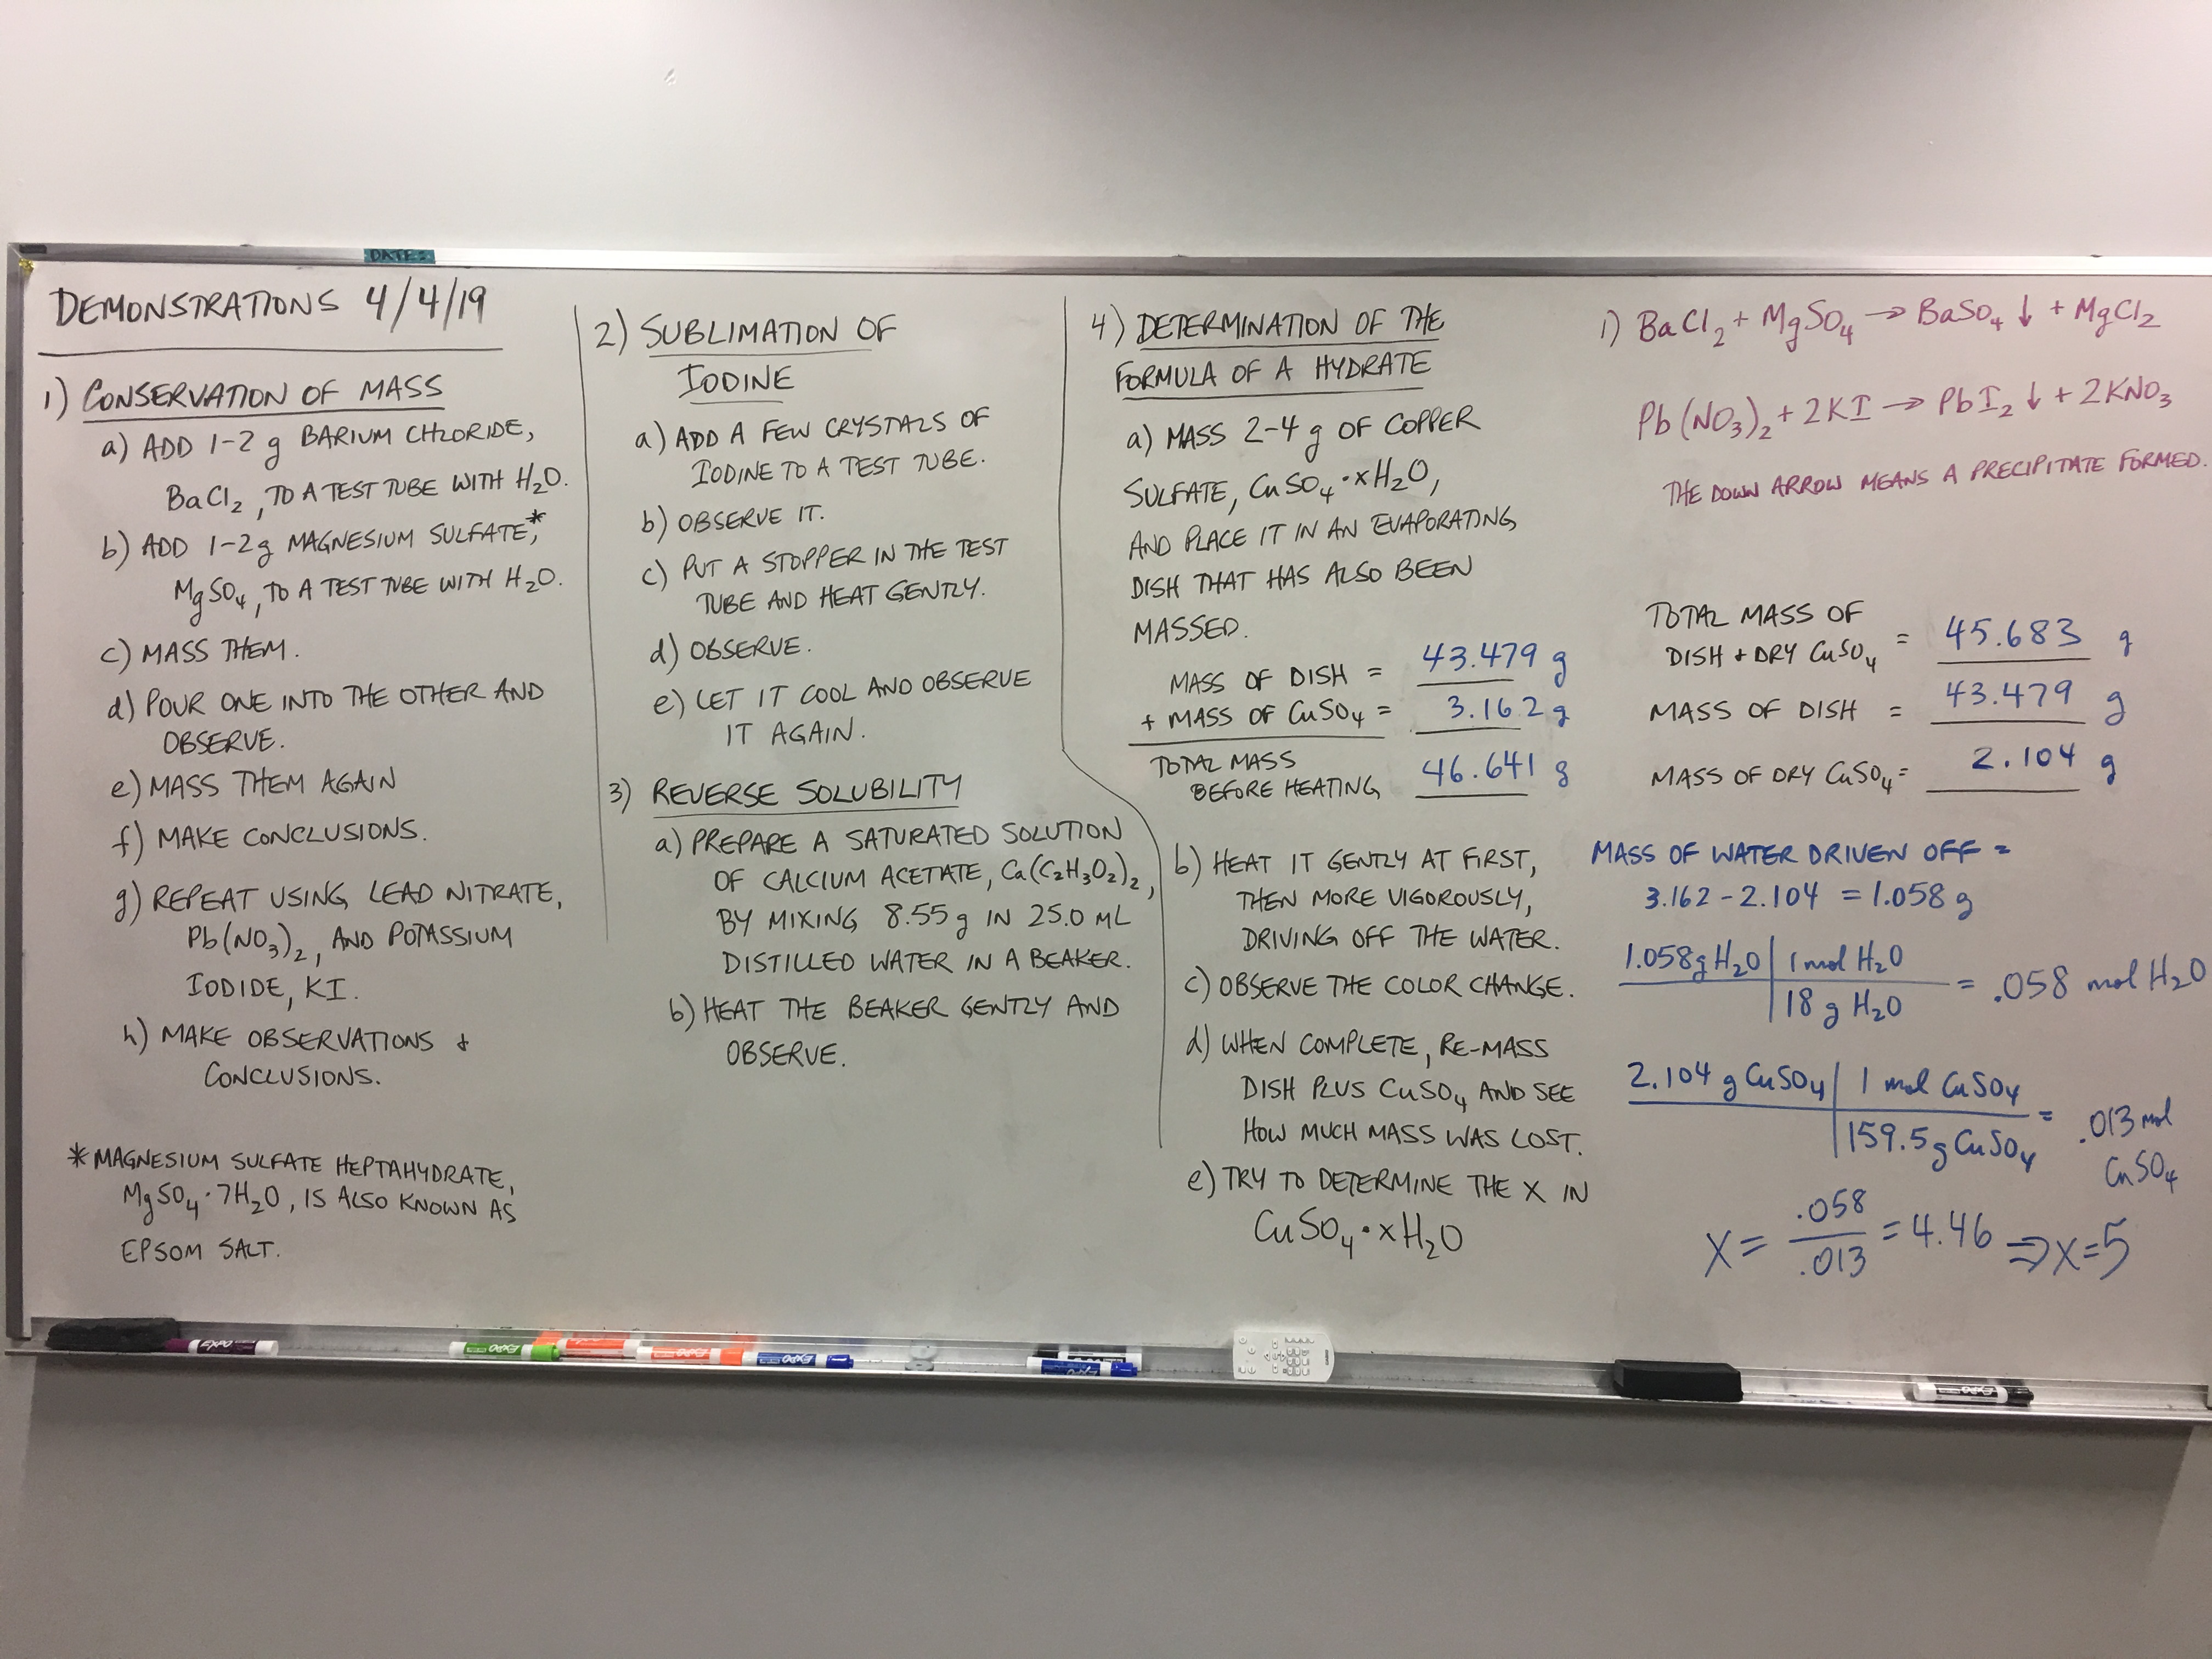 DATE:
DEMONSTRATIONS 4/4/19
1) CONSERVATION OF MASS
a) ADD 1-2 g BARIUM CHLORIDE,
BaCl₂, TO A TEST TUBE WITH H₂O.
b) ADD 1-2 g MAGNESIUM SULFATE,*
MgSO₄, TO A TEST TUBE WITH H₂O.
c) MASS THEM.
d) POUR ONE INTO THE OTHER AND
OBSERVE.
e) MASS THEM AGAIN
f) MAKE CONCLUSIONS.
g) REPEAT USING LEAD NITRATE,
Pb(NO₃)₂, AND POTASSIUM
IODIDE, KI.
h) MAKE OBSERVATIONS &
CONCLUSIONS.
*MAGNESIUM SULFATE HEPTAHYDRATE,
MgSO₄·7H₂O, IS ALSO KNOWN AS
EPSOM SALT.
2) SUBLIMATION OF
IODINE
a) ADD A FEW CRYSTALS OF
IODINE TO A TEST TUBE.
b) OBSERVE IT.
c) PUT A STOPPER IN THE TEST
TUBE AND HEAT GENTLY.
d) OBSERVE.
e) LET IT COOL AND OBSERVE
IT AGAIN.
3) REVERSE SOLUBILITY
a) PREPARE A SATURATED SOLUTION
OF CALCIUM ACETATE, Ca(C₂H₃O₂)₂,
BY MIXING 8.55 g IN 25.0 ML
DISTILLED WATER IN A BEAKER.
b) HEAT THE BEAKER GENTLY AND
OBSERVE.
4) DETERMINATION OF THE
FORMULA OF A HYDRATE
a) MASS 2-4 g OF COPPER
SULFATE, CuSO₄·xH₂O,
AND PLACE IT IN AN EVAPORATING
DISH THAT HAS ALSO BEEN
MASSED.
MASS OF DISH = 43.479 g
+ MASS OF CuSO₄ = 3.162 g
TOTAL MASS
BEFORE HEATING 46.641 g
b) HEAT IT GENTLY AT FIRST,
THEN MORE VIGOROUSLY,
DRIVING OFF THE WATER.
c) OBSERVE THE COLOR CHANGE.
d) WHEN COMPLETE, RE-MASS
DISH PLUS CuSO₄ AND SEE
HOW MUCH MASS WAS LOST.
e) TRY TO DETERMINE THE X IN
CuSO₄·xH₂O
1) BaCl₂ + MgSO₄ → BaSO₄ ↓ + MgCl₂
Pb(NO₃)₂ + 2KI → PbI₂ ↓ + 2KNO₃
THE DOWN ARROW MEANS A PRECIPITATE FORMED.
TOTAL MASS OF
DISH & DRY CuSO₄ = 45.683 g
MASS OF DISH = 43.479 g
MASS OF DRY CuSO₄ = 2.104 g
MASS OF WATER DRIVEN OFF =
3.162 - 2.104 = 1.058 g
1.058g H₂O | 1 mol H₂O
18 g H₂O = .058 mol H₂O
2.104 g CuSO₄ | 1 mol CuSO₄
159.5g CuSO₄ = .013 mol
CuSO₄
X = .058/.013 = 4.46 ⇒ X=5
EXPO
EXPO
EXPO
EXPO
EXPO